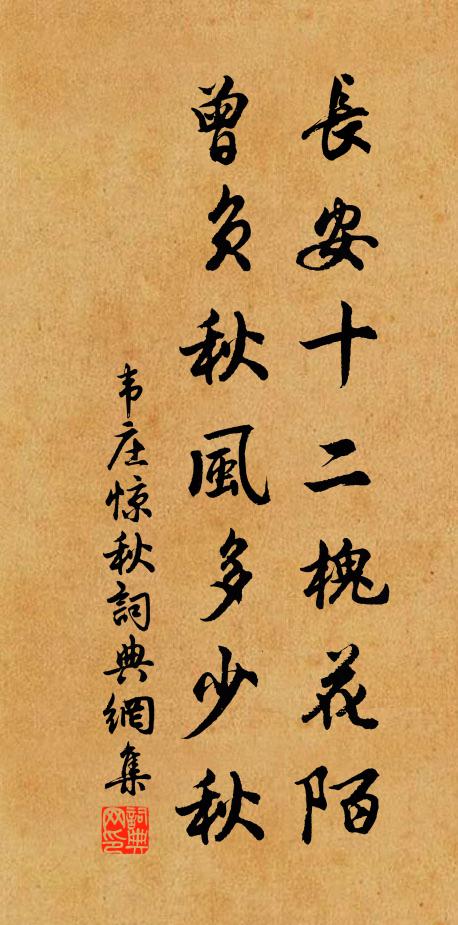 長安十二槐花陌
曾负秋風多少秋
韦庄惊秋詞典網集
詞典网印